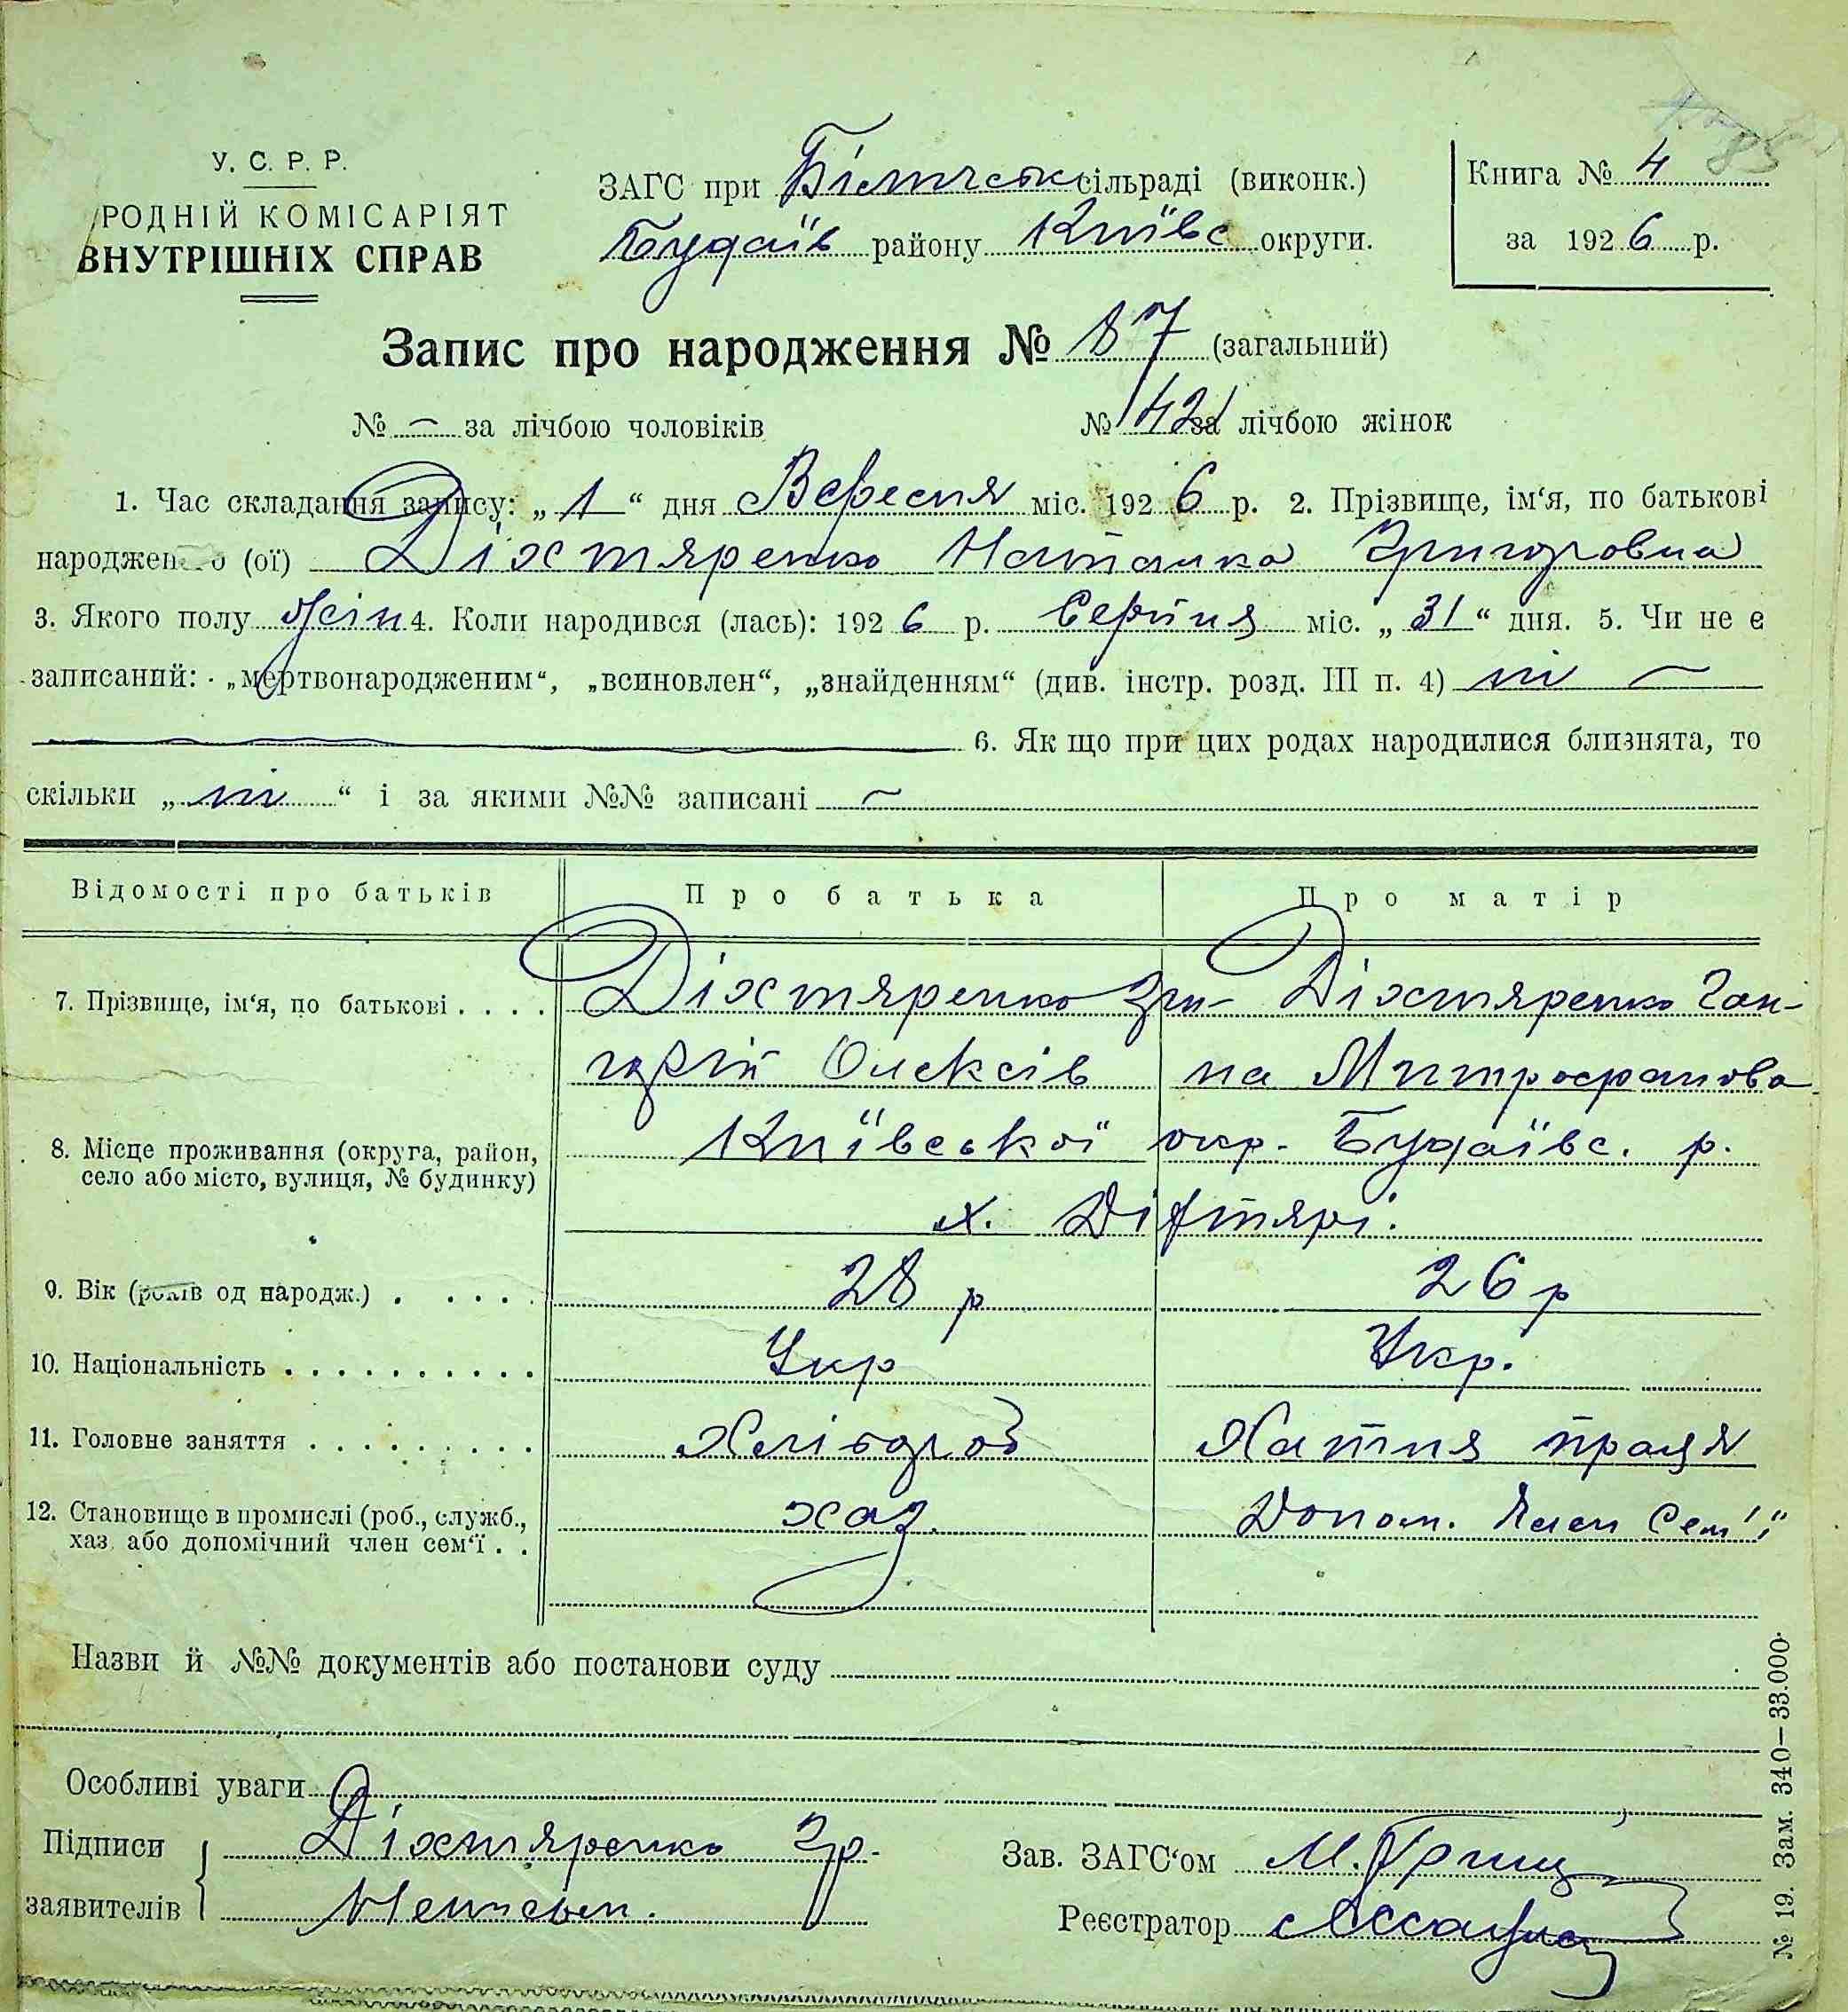 У. С. Р. Р.
РОДНІЙ КОМІСАРІЯТ
ВНУТРІШНІХ СПРАВ
ЗАГС при Білическ сільраді (виконк.)
Будаїв району Київс округи.
Книга № 4 85
за 1926 р.
Запис про народження № 87 (загальний)
№ — за лічбою чоловіків № 42 за лічбою жінок
1. Час складання запису: „1“ дня Вересня міс. 1926 р. 2. Прізвище, ім‘я, по батькові
народженого (ої) Діхтяренко Наталка Григоровна
3. Якого полу жін 4. Коли народився (лась): 1926 р. Серпня міс. „31“ дня. 5. Чи не є
записаний: „мертвонародженим“, „всиновлен“, „знайденням“ (див. інстр. розд. III п. 4) ні —
6. Як що при цих родах народилися близнята, то
скільки „ні“ і за якими №№ записані —
Відомості про батьків Про батька Про матір
7. Прізвище, ім‘я, по батькові . . . . Діхтяренко Гри- Діхтяренко Ган-
горій Олексів на Митрофанова
8. Місце проживання (округа, район, село або місто, вулиця, № будинку) Київської окр. Будаївс. р.
х. Дігтярі.
9. Вік (років од народж.) . . . . . 28 р 26 р
10. Національність . . . . . . . . . . Укр Укр.
11. Головне заняття . . . . . . . . . Хлібороб Хатня праця
12. Становище в промислі (роб., служб., хаз. або допомічний член сем‘ї . . хаз. Допом. Член Сем'ї
Назви й №№ документів або постанови суду
Особливі уваги
Підписи заявителів Діхтяренко Гр.
Неписьм.
Зав. ЗАГС‘ом М. Гриц
Реєстратор
№ 19. Зам. 340—33.000.